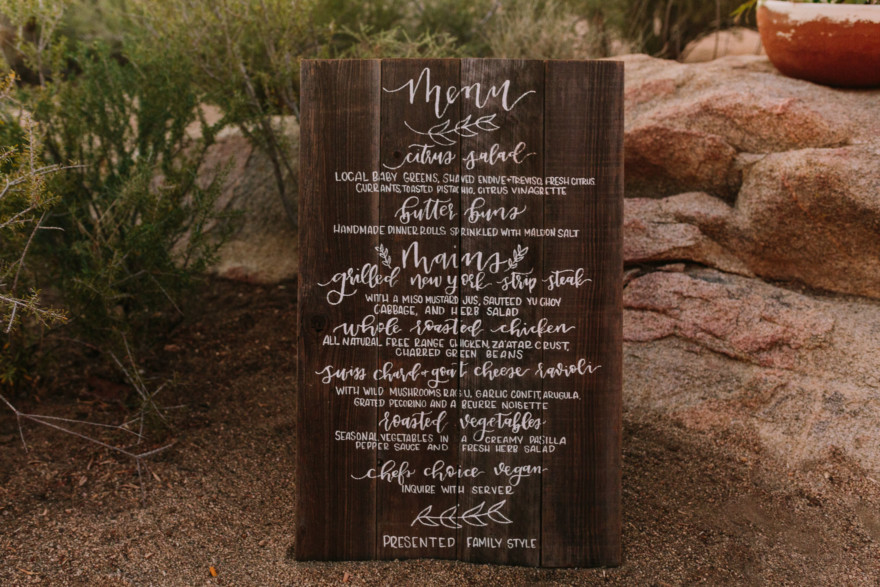 Menu
citrus salad
LOCAL BABY GREENS, SHAVED ENDIVE+TREVISO, FRESH CITRUS
CURRANTS, TOASTED PISTACHIO, CITRUS VINAGRETTE
butter buns
HANDMADE DINNER ROLLS SPRINKLED WITH MALDON SALT
Mains
grilled new york strip steak
WITH A MISO MUSTARD JUS, SAUTEED YU CHOY
CABBAGE, AND HERB SALAD
whole roasted chicken
ALL NATURAL FREE RANGE CHICKEN, ZA'ATAR CRUST,
CHARRED GREEN BEANS
swiss chard + goat cheese ravioli
WITH WILD MUSHROOMS RAGU, GARLIC CONFIT, ARUGULA,
GRATED PECORINO AND A BEURRE NOISETTE
roasted vegetables
SEASONAL VEGETABLES IN A CREAMY PASILLA
PEPPER SAUCE AND FRESH HERB SALAD
chefs choice vegan
INQUIRE WITH SERVER
PRESENTED FAMILY STYLE